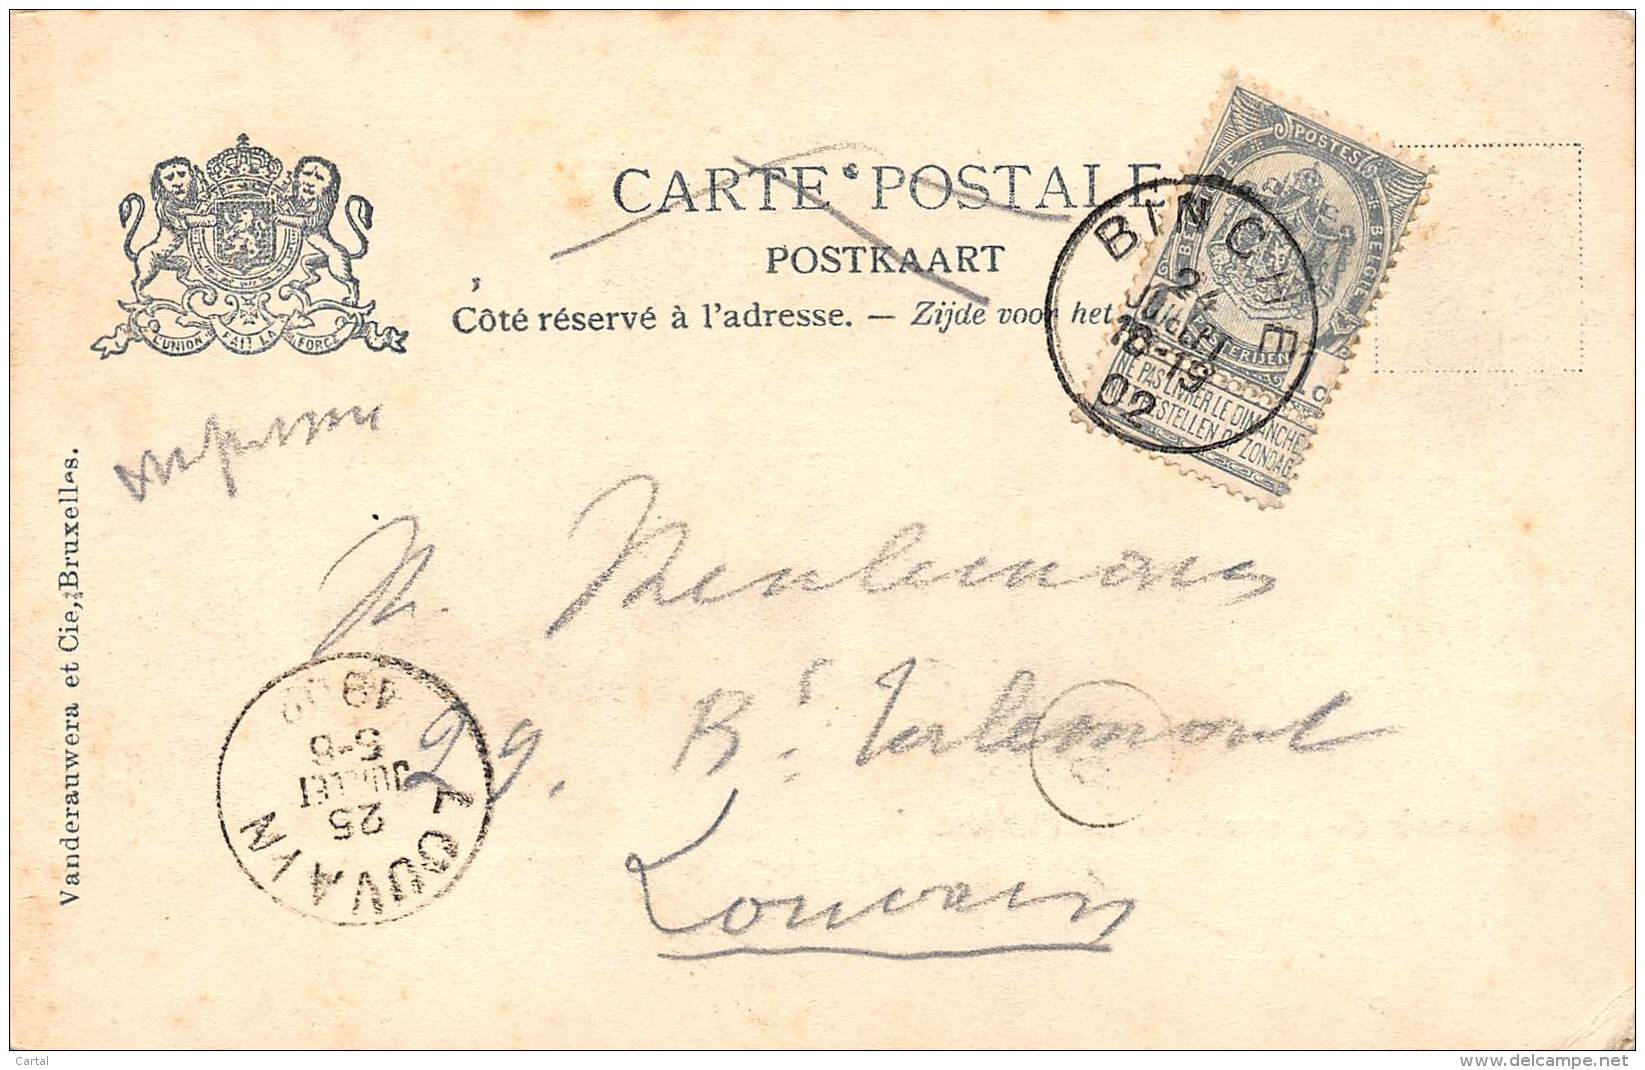 CARTE POSTALE
POSTKAART
Côté réservé à l'adresse. — Zijde voor het
L'UNION FAIT LA FORCE
POSTES
BELGIE
NE PAS LIVRER LE DIMANCHE
BESTELLEN OP ZONDAG
BINCHE
JUILLET
18-19
02
imprimé
M. Meulemans
29. R. Tirlemont
Louvain
LOUVAIN
25
JUILLET
Vanderauwera et Cie, Bruxelles.
Cartal
www.delcampe.net